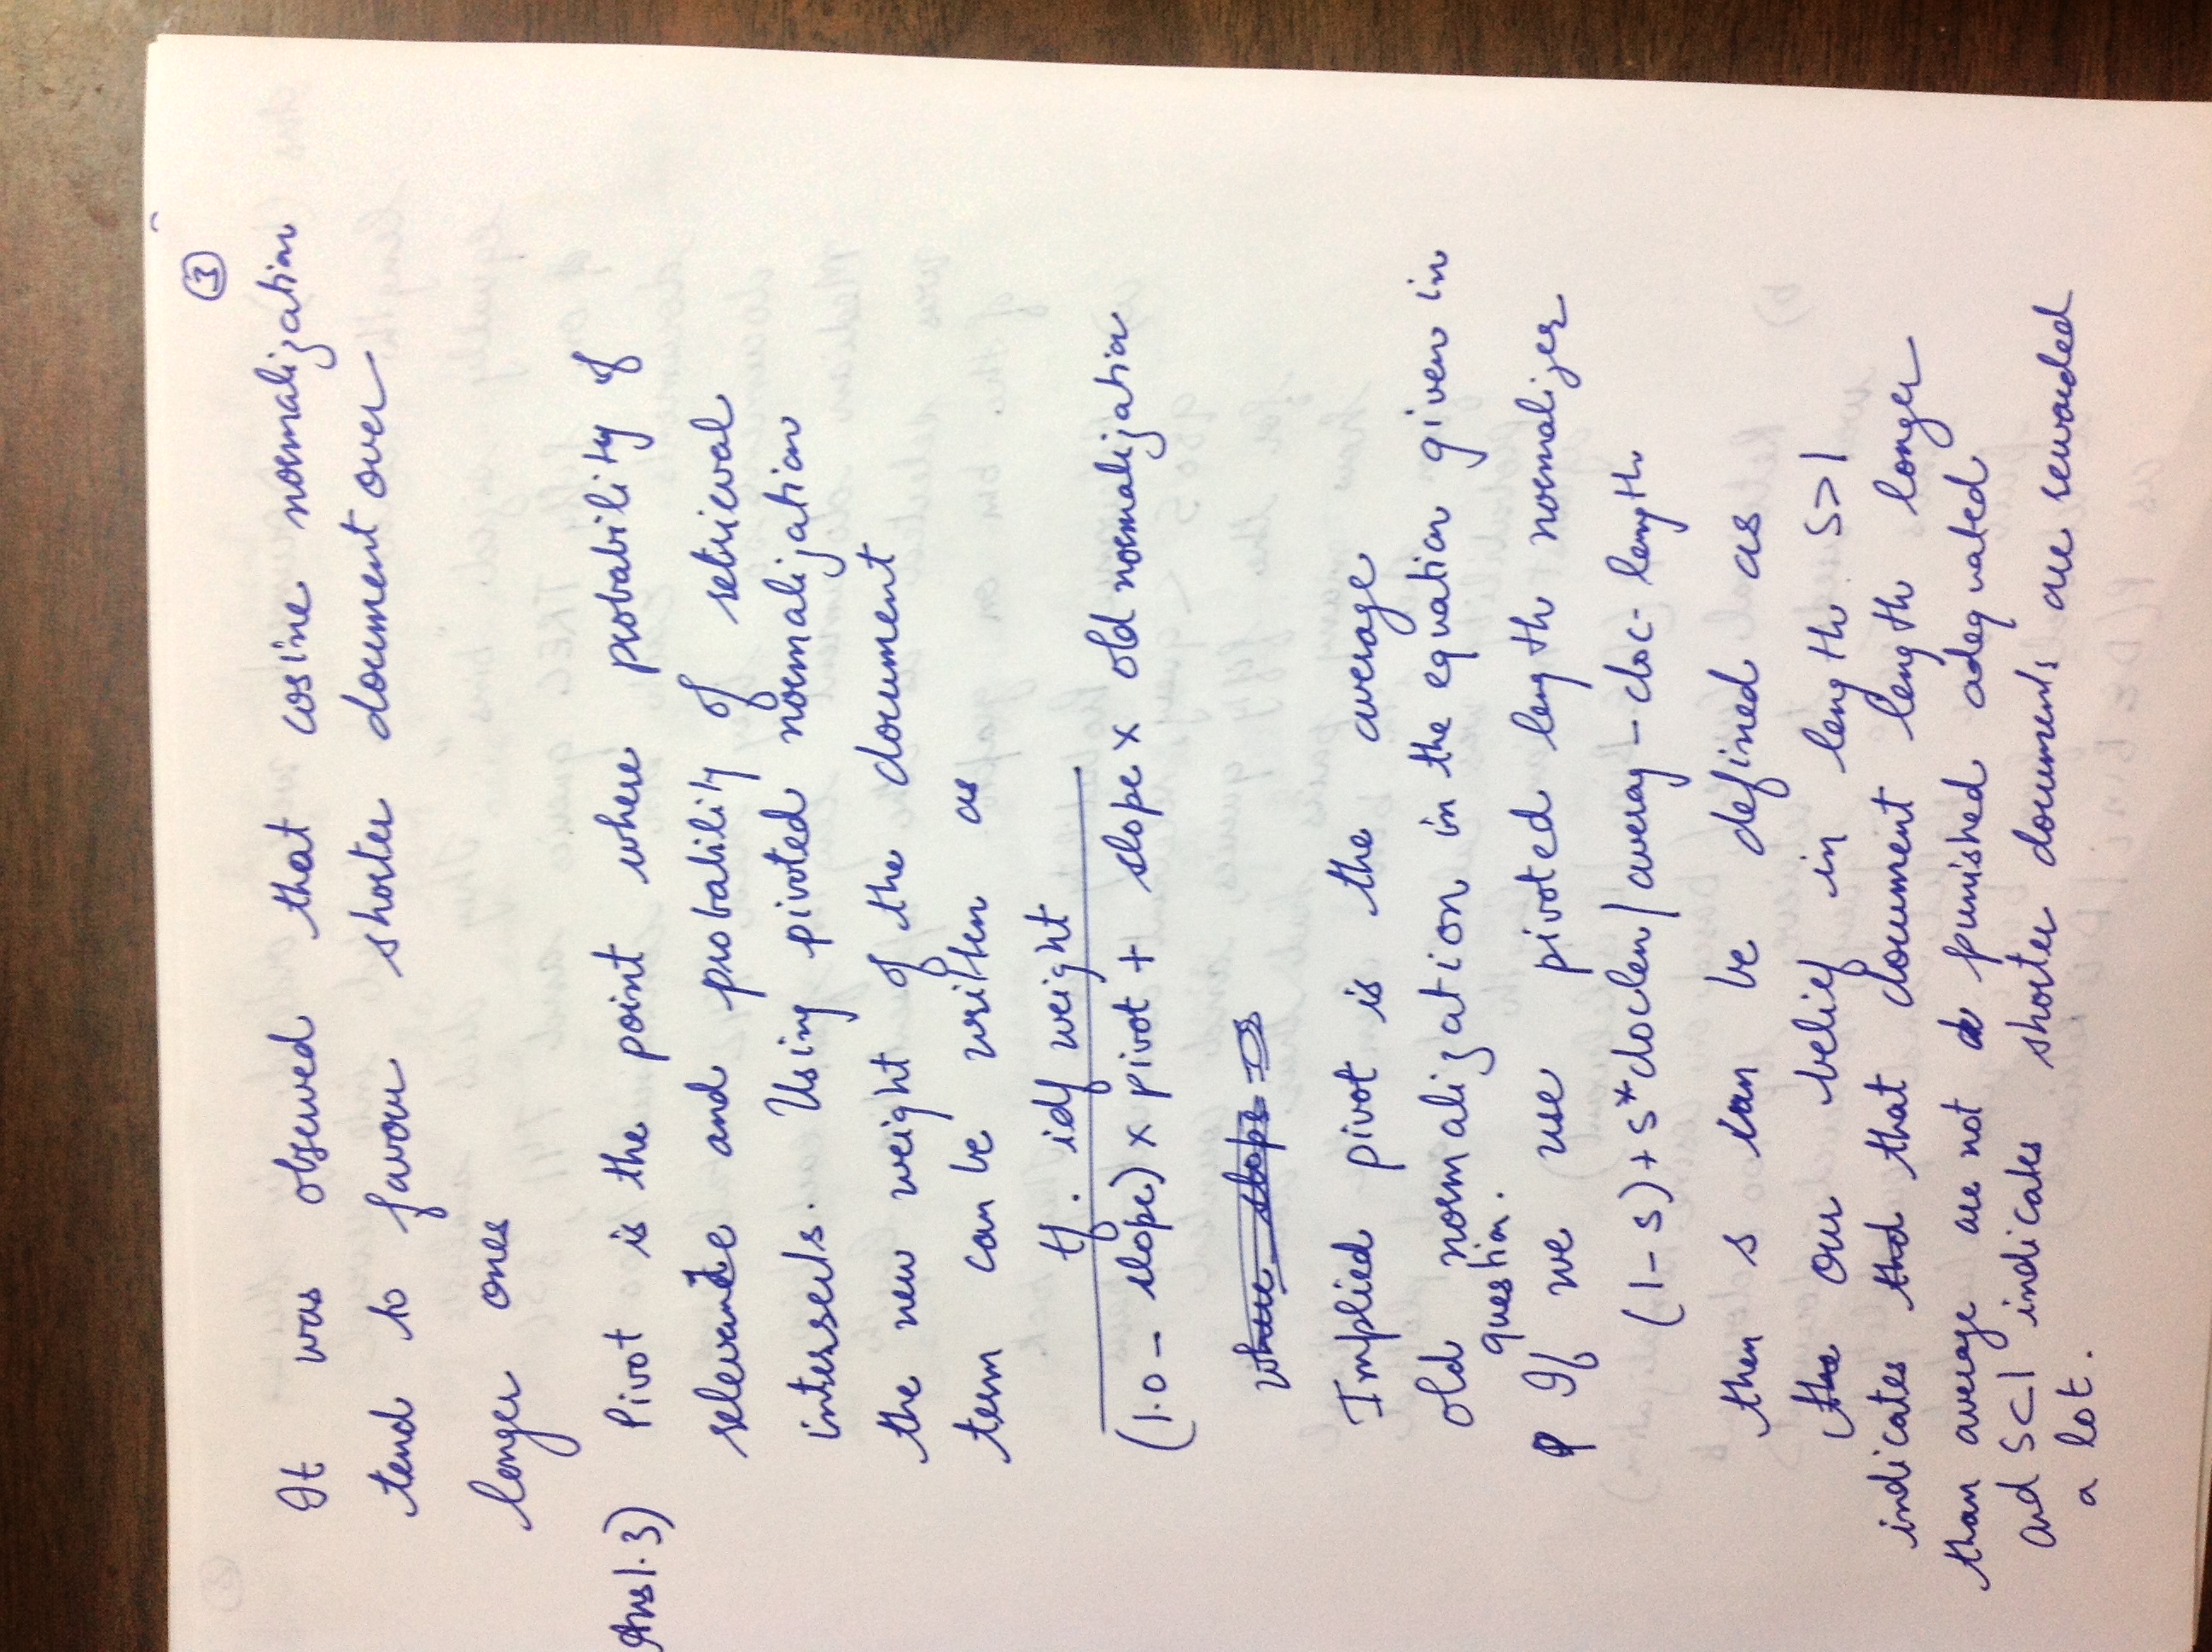 3
It was observed that cosine normalization
tend to favour shorter document over
longer ones
Ans 1.3) Pivot is the point where probability of
relevance and probability of retrieval
interssects. Using pivoted normalization
the new weight of the document
term can be written as
tf. idf weight
(1.0 - slope) x pivot + slope x old normalization
where slope is
Implied pivot is the average
old normalization in the equation given in
question.
If we use pivoted length normalizer
(1-s)+s*doclen/averag-doc-length
then s can be defined as
the our belief in length s>1
indicates that document length longer
than average are not punished adequated
and s<1 indicates shorter documents are rewarded
a lot.